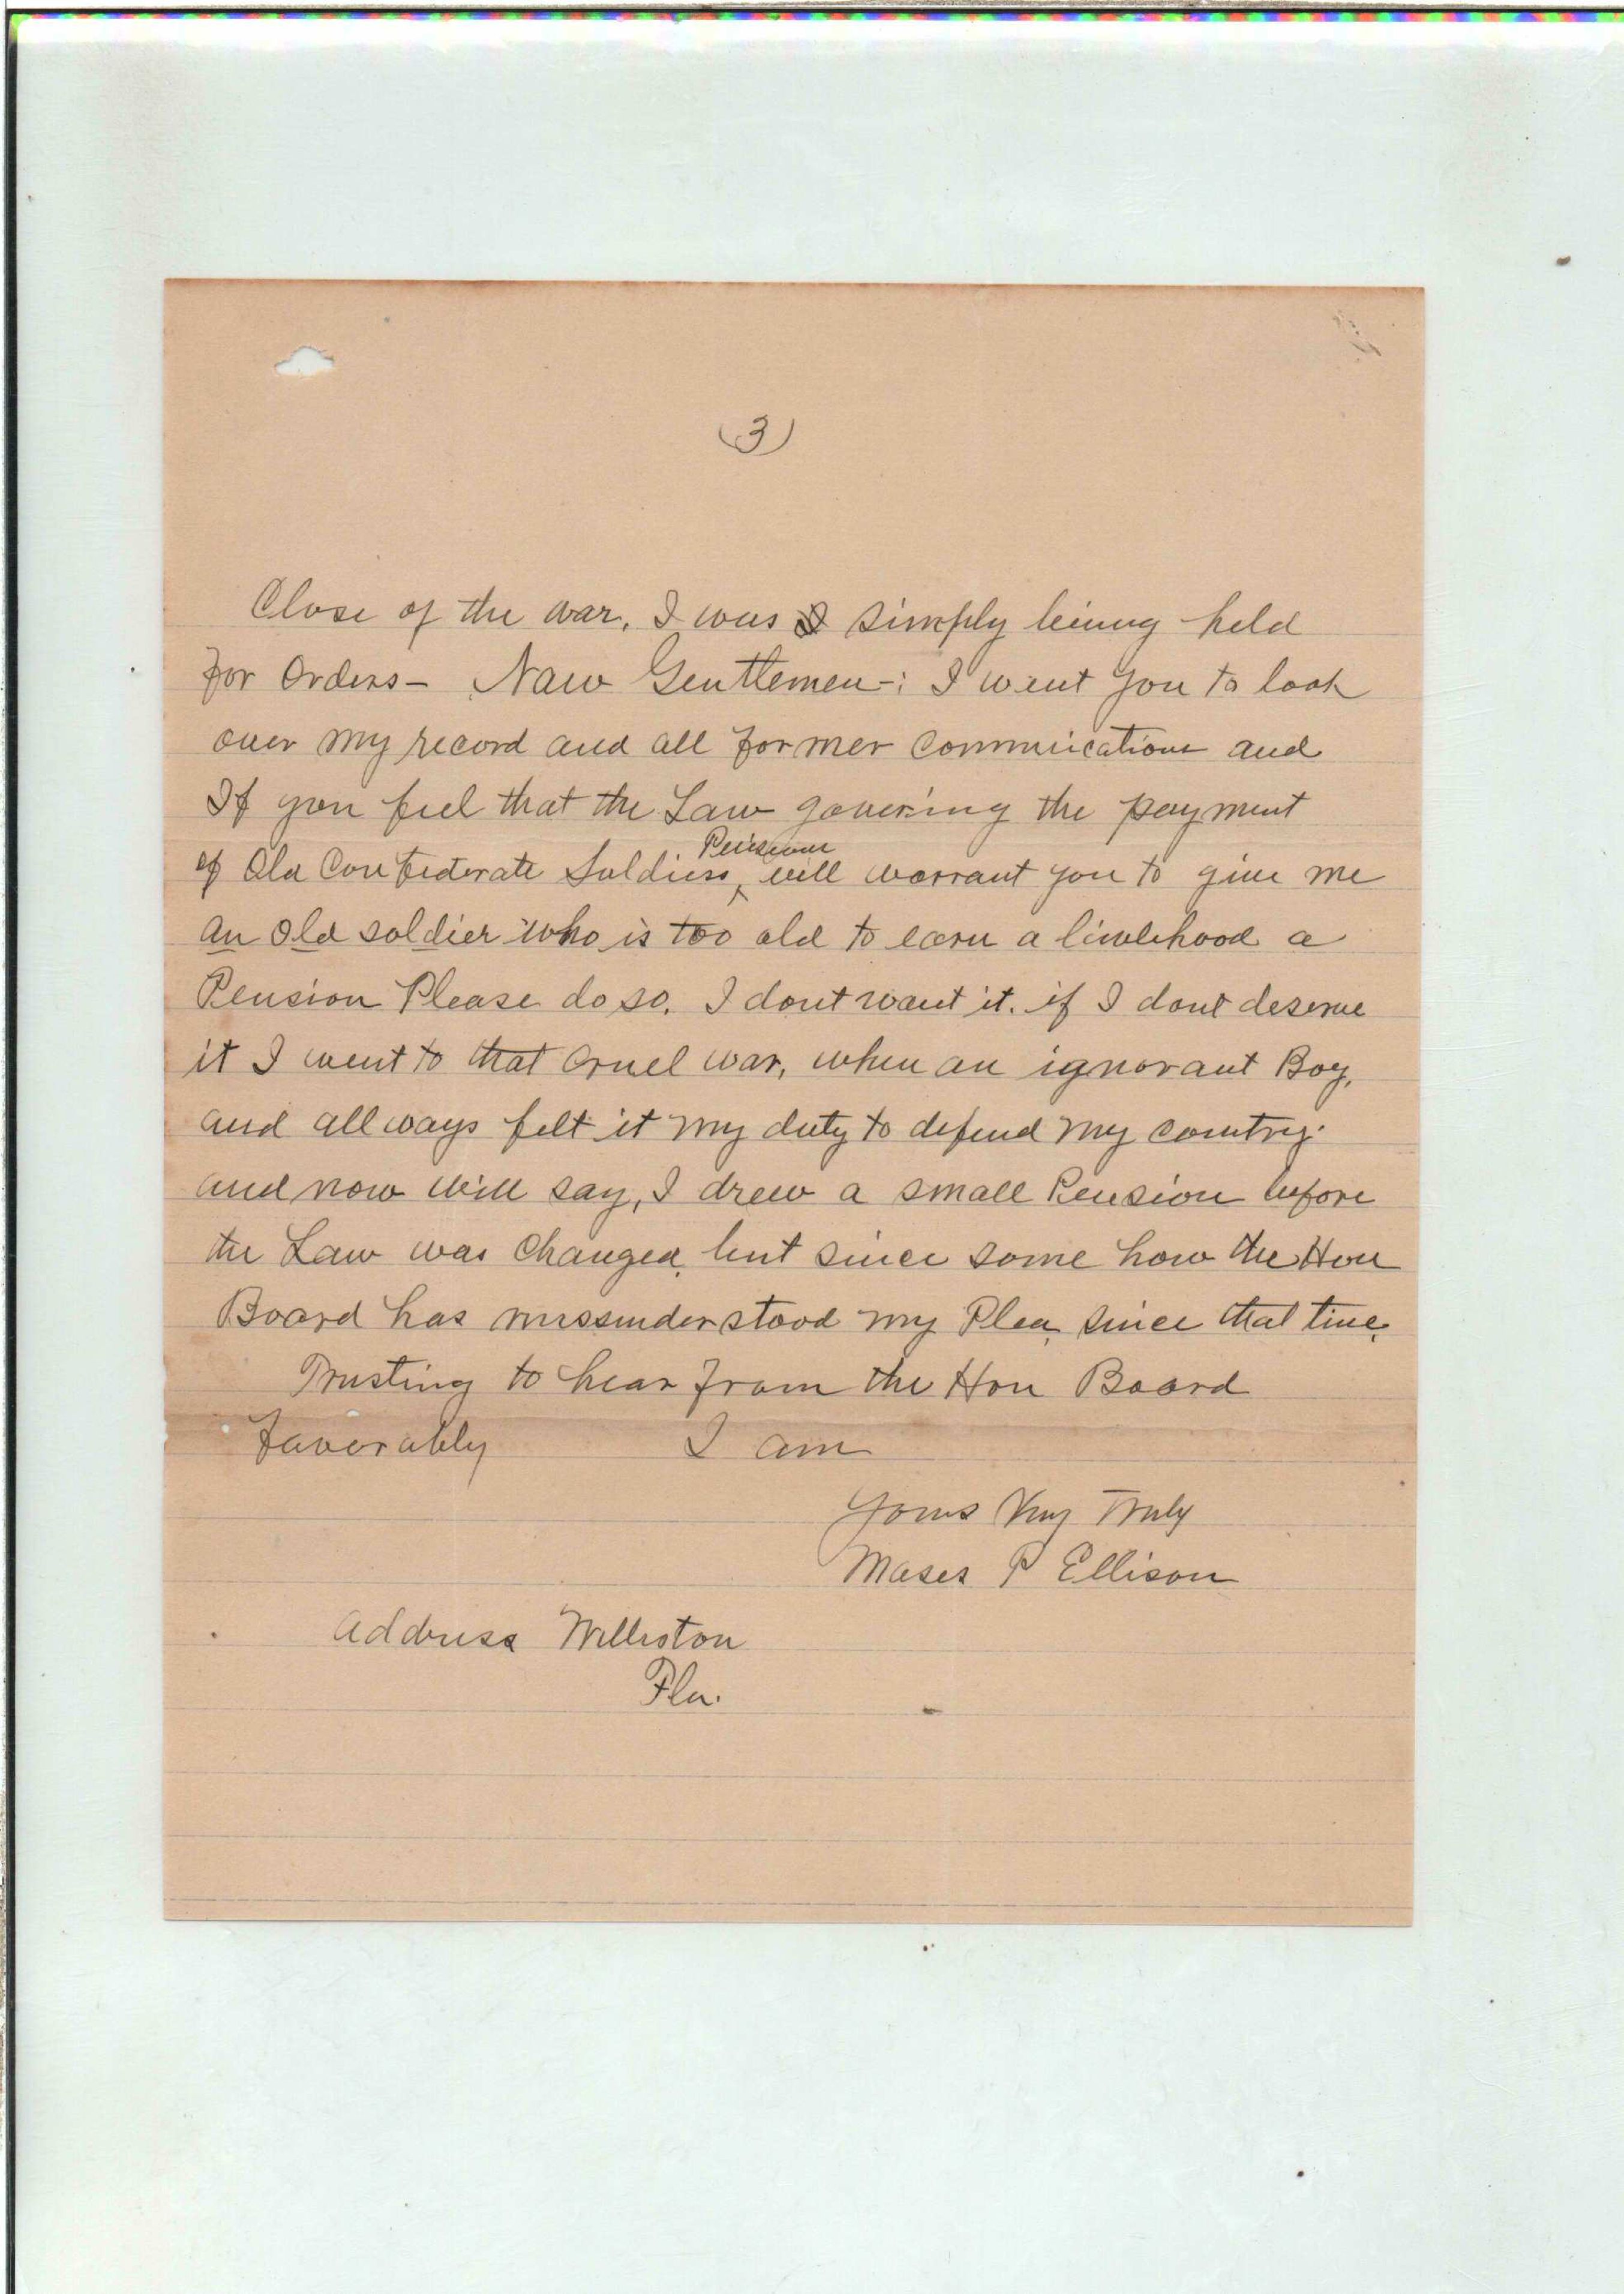 (3)
Close of the war, I was simply being held
for Orders- Now Gentlemen-: I want you to look
over my record and all former communications and
If you feel that the Law govering the payment
Pension
of Old Confederate Soldiers, will warrant you to give me
an old soldier who is too old to earn a livelihood a
Pension Please do so. I dont want it. if I dont deserve
it I went to that cruel war, when an ignorant Boy,
and allways felt it my duty to defend my country.
and now will say, I drew a small Pension before
the Law was changed, but since some how the Hon
Board has missunderstood my Plea, since that time.
Trusting to hear from the Hon Board
favorably I am
Yours Very Truly
Moses P Ellison
Address Williston
Fla.